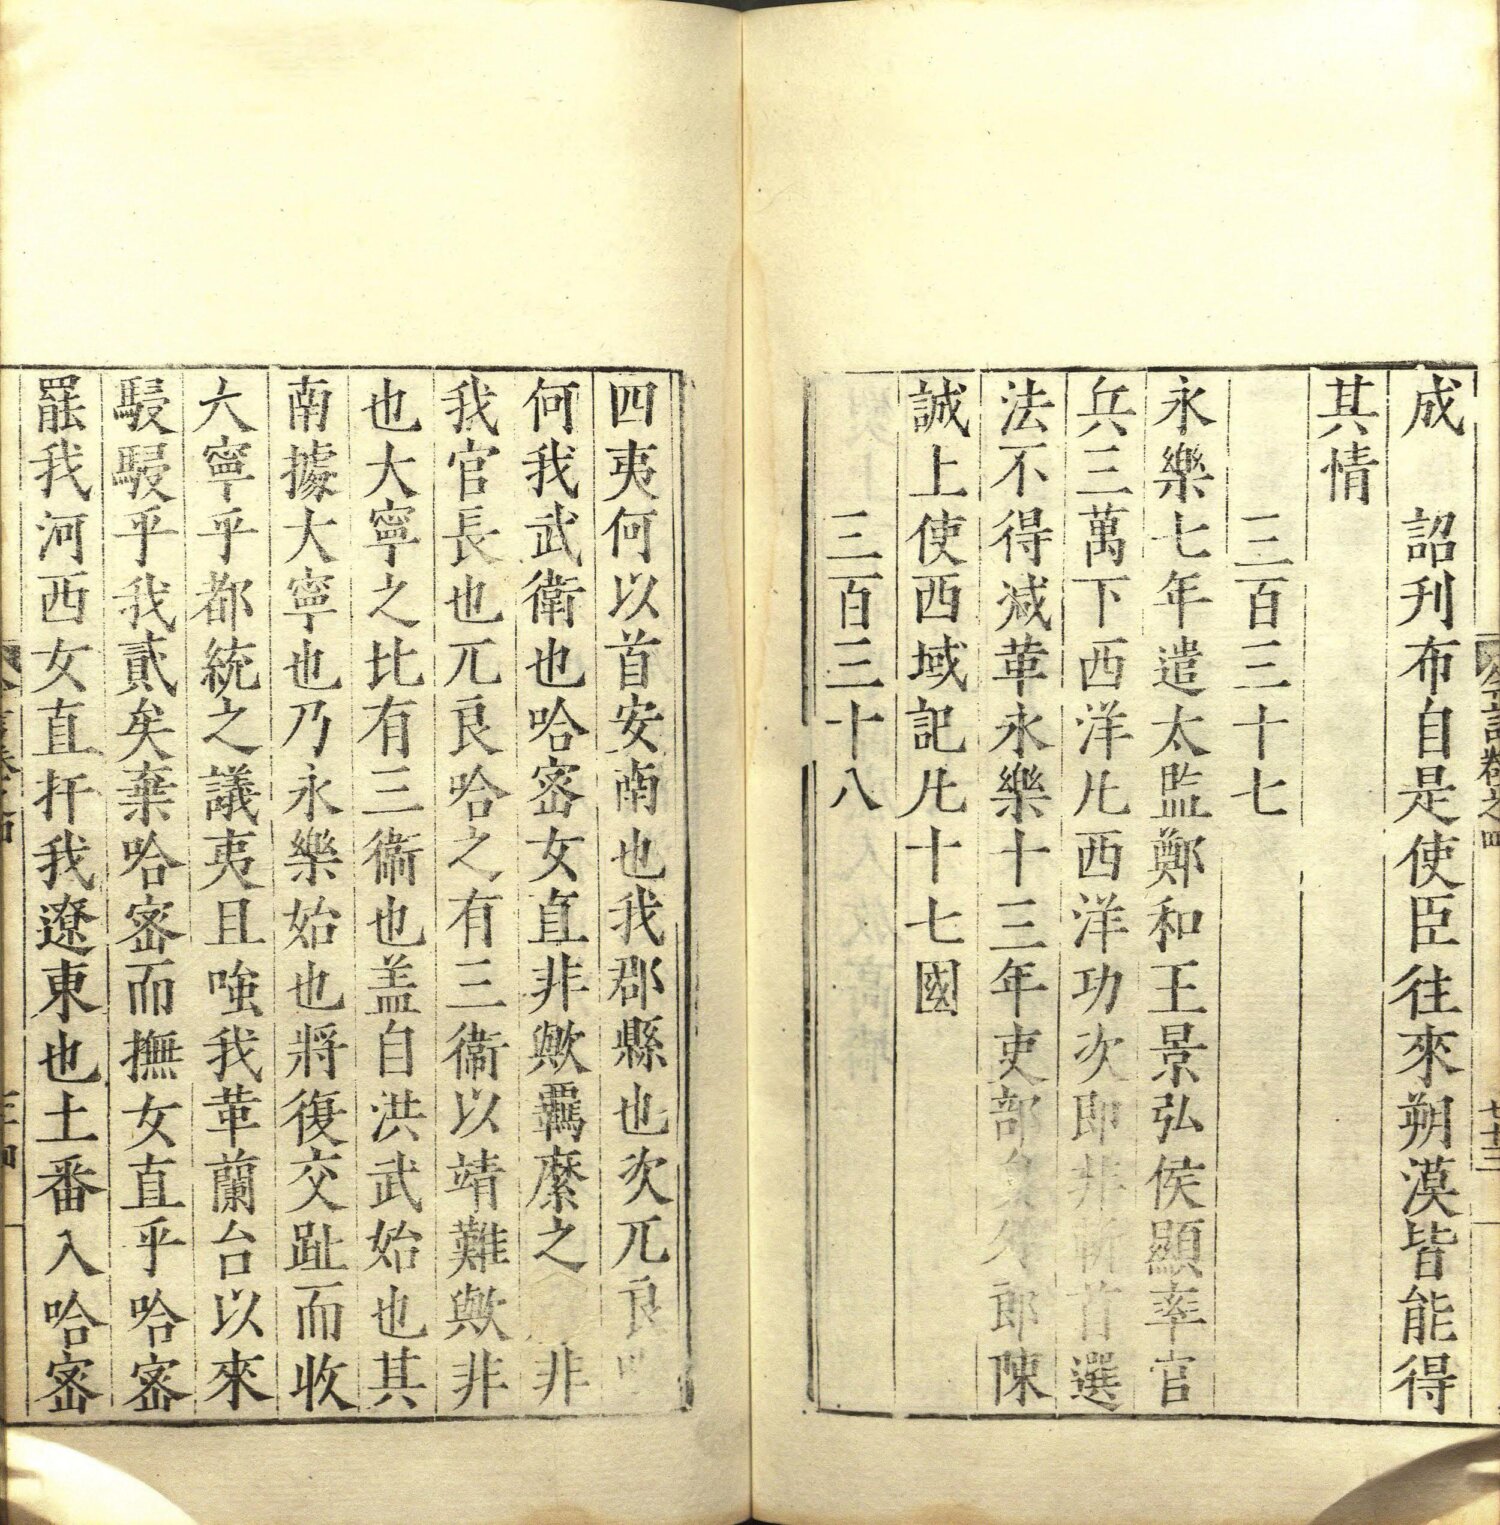 今言卷之四
七十三
成 詔刋布自是使臣往來朔漠皆能得
其情
三百三十七
永樂七年遣太監鄭和王景弘侯顯率官
兵三萬下西洋凡西洋功次即非斬首選
法不得減革永樂十三年吏部員外郎陳
誠上使西域記凡十七國
三百三十八
四夷何以首安南也我郡縣也次兀良
何我武衛也哈宻女直非歟羈縻之 非
我官長也兀良哈之有三衞以靖難歟非
也大寧之比有三衞也盖自洪武始也其
南據大寧也乃永樂始也將復交趾而收
大寧乎都統之議夷且嗤我革蘭台以來
駸駸乎我貳矣棄哈宻而撫女直乎哈宻
罷我河西女直扞我遼東也土番入哈宻